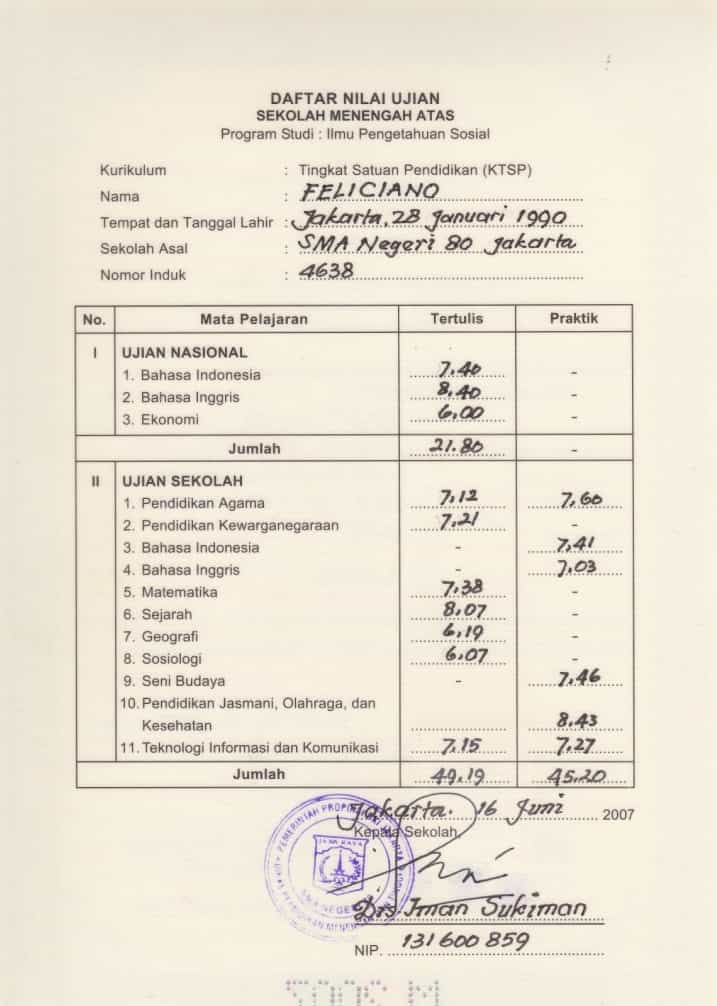 DAFTAR NILAI UJIAN
SEKOLAH MENENGAH ATAS
Program Studi : Ilmu Pengetahuan Sosial
Kurikulum : Tingkat Satuan Pendidikan (KTSP)
Nama : FELICIANO
Tempat dan Tanggal Lahir : Jakarta, 28 Januari 1990
Sekolah Asal : SMA Negeri 80 Jakarta
Nomor Induk : 4638
No. Mata Pelajaran Tertulis Praktik
I UJIAN NASIONAL
1. Bahasa Indonesia 7,40 -
2. Bahasa Inggris 8,40 -
3. Ekonomi 6,00 -
Jumlah 21.80 -
II UJIAN SEKOLAH
1. Pendidikan Agama 7,12 7,60
2. Pendidikan Kewarganegaraan 7,21 -
3. Bahasa Indonesia - 7,41
4. Bahasa Inggris - 7,03
5. Matematika 7,38 -
6. Sejarah 8,07 -
7. Geografi 6,19 -
8. Sosiologi 6,07 -
9. Seni Budaya - 7,46
10. Pendidikan Jasmani, Olahraga, dan
Kesehatan 8,43
11. Teknologi Informasi dan Komunikasi 7,15 7,27
Jumlah 49,19 45,20
Jakarta. 16 Juni 2007
Kepala Sekolah
PEMERINTAH PROPINSI
JAYA RAYA
SMA NEGERI
Drs Iman Sukiman
NIP. 131600859